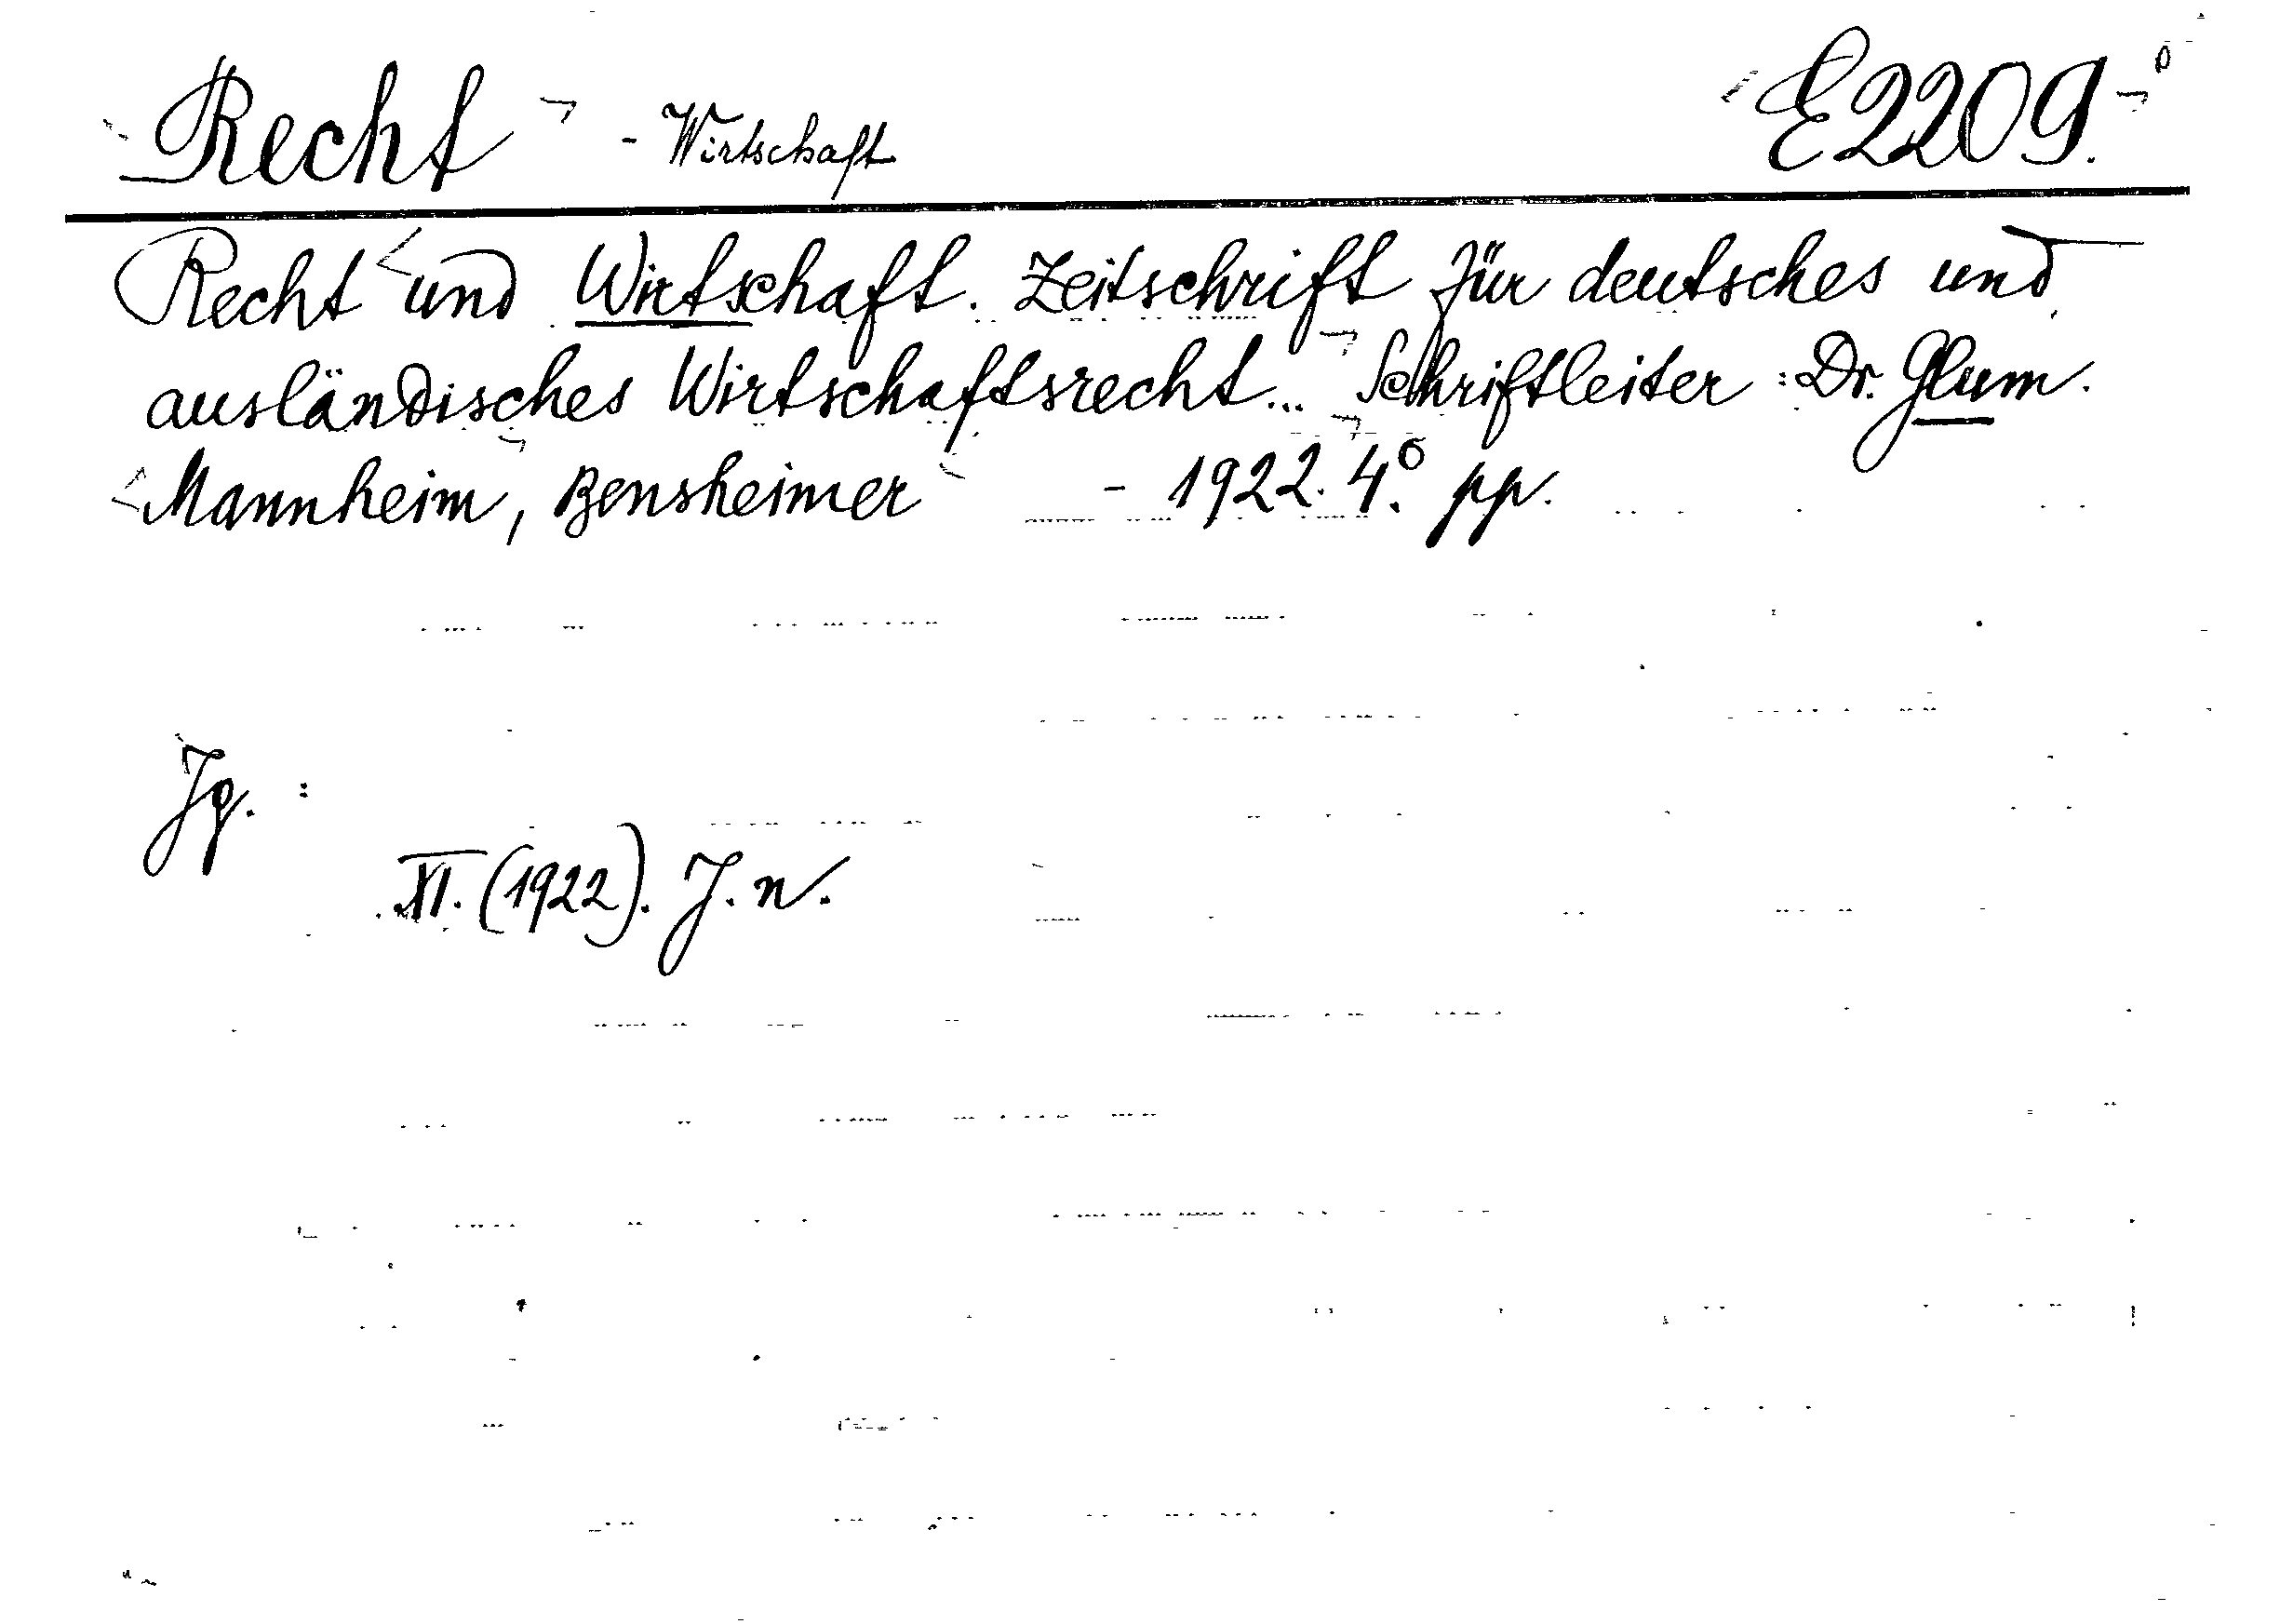 Recht - Wirtschaft E2209.
Recht und Wirtschaft. Zeitschrift für deutsches und
ausländisches Wirtschaftsrecht... Schriftleiter: Dr. Glum.
Mannheim, Bensheimer - 1922. 4.° pp.
Jg. :
XI. (1922). J. n.